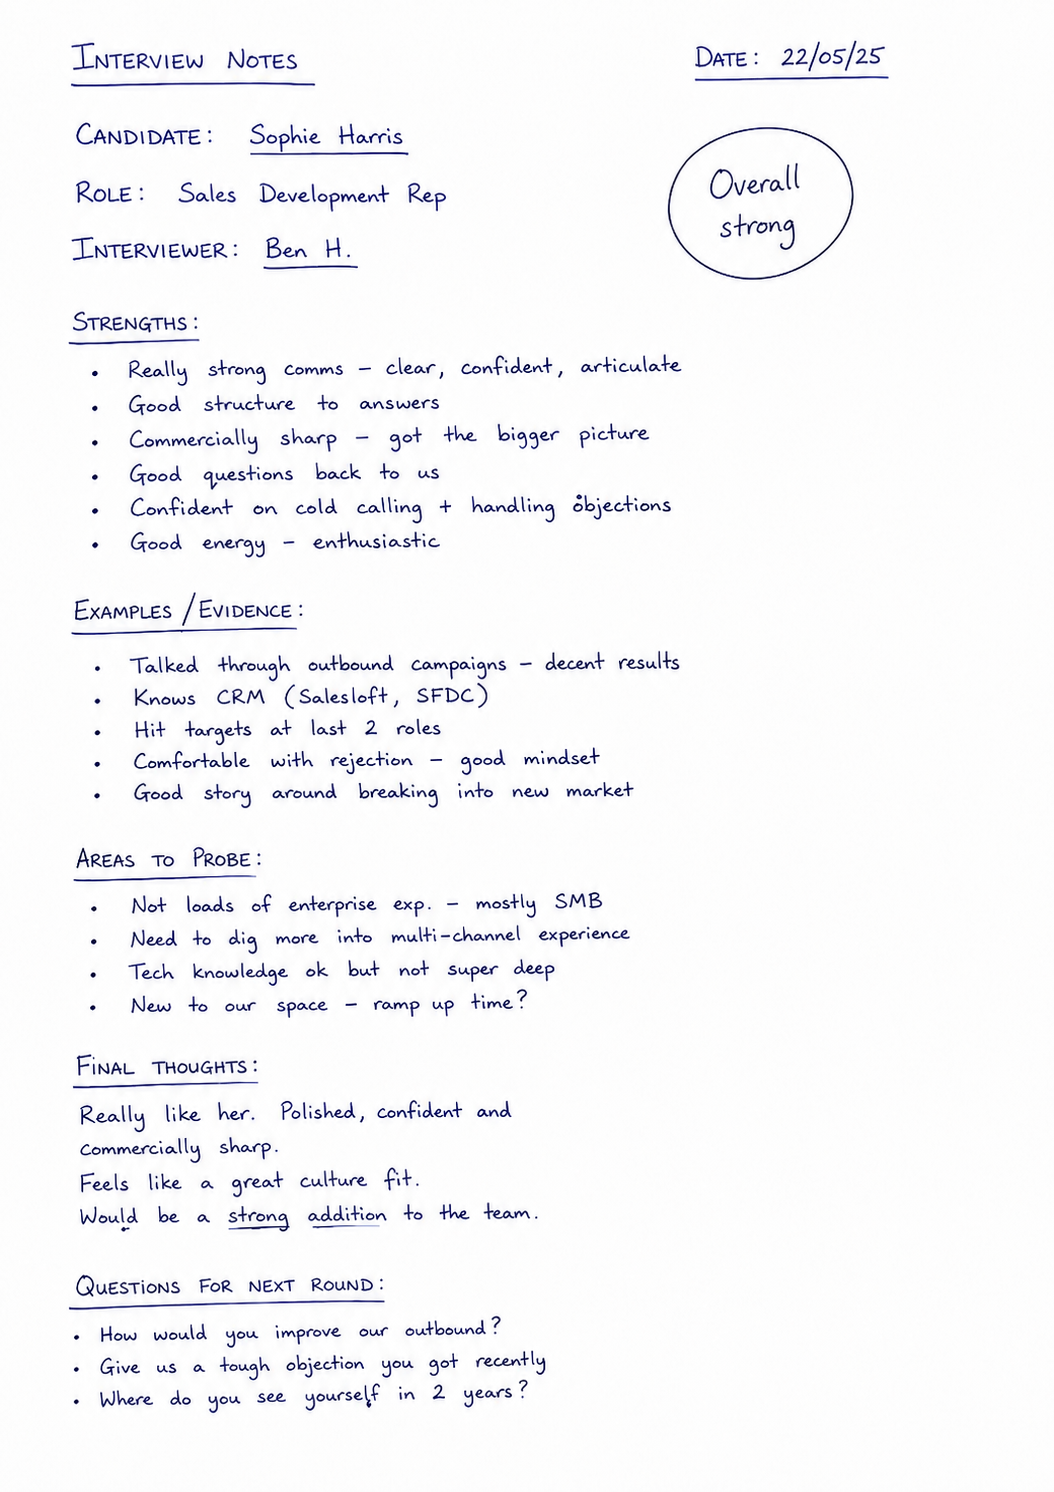 INTERVIEW NOTES
DATE: 22/05/25
CANDIDATE: Sophie Harris
ROLE: Sales Development Rep
INTERVIEWER: Ben H.
Overall
strong
STRENGTHS:
• Really strong comms – clear, confident, articulate
• Good structure to answers
• Commercially sharp – got the bigger picture
• Good questions back to us
• Confident on cold calling + handling objections
• Good energy – enthusiastic
EXAMPLES / EVIDENCE:
• Talked through outbound campaigns – decent results
• Knows CRM (Salesloft, SFDC)
• Hit targets at last 2 roles
• Comfortable with rejection – good mindset
• Good story around breaking into new market
AREAS TO PROBE:
• Not loads of enterprise exp. – mostly SMB
• Need to dig more into multi-channel experience
• Tech knowledge ok but not super deep
• New to our space – ramp up time?
FINAL THOUGHTS:
Really like her. Polished, confident and
commercially sharp.
Feels like a great culture fit.
Would be a strong addition to the team.
QUESTIONS FOR NEXT ROUND:
• How would you improve our outbound?
• Give us a tough objection you got recently
• Where do you see yourself in 2 years?